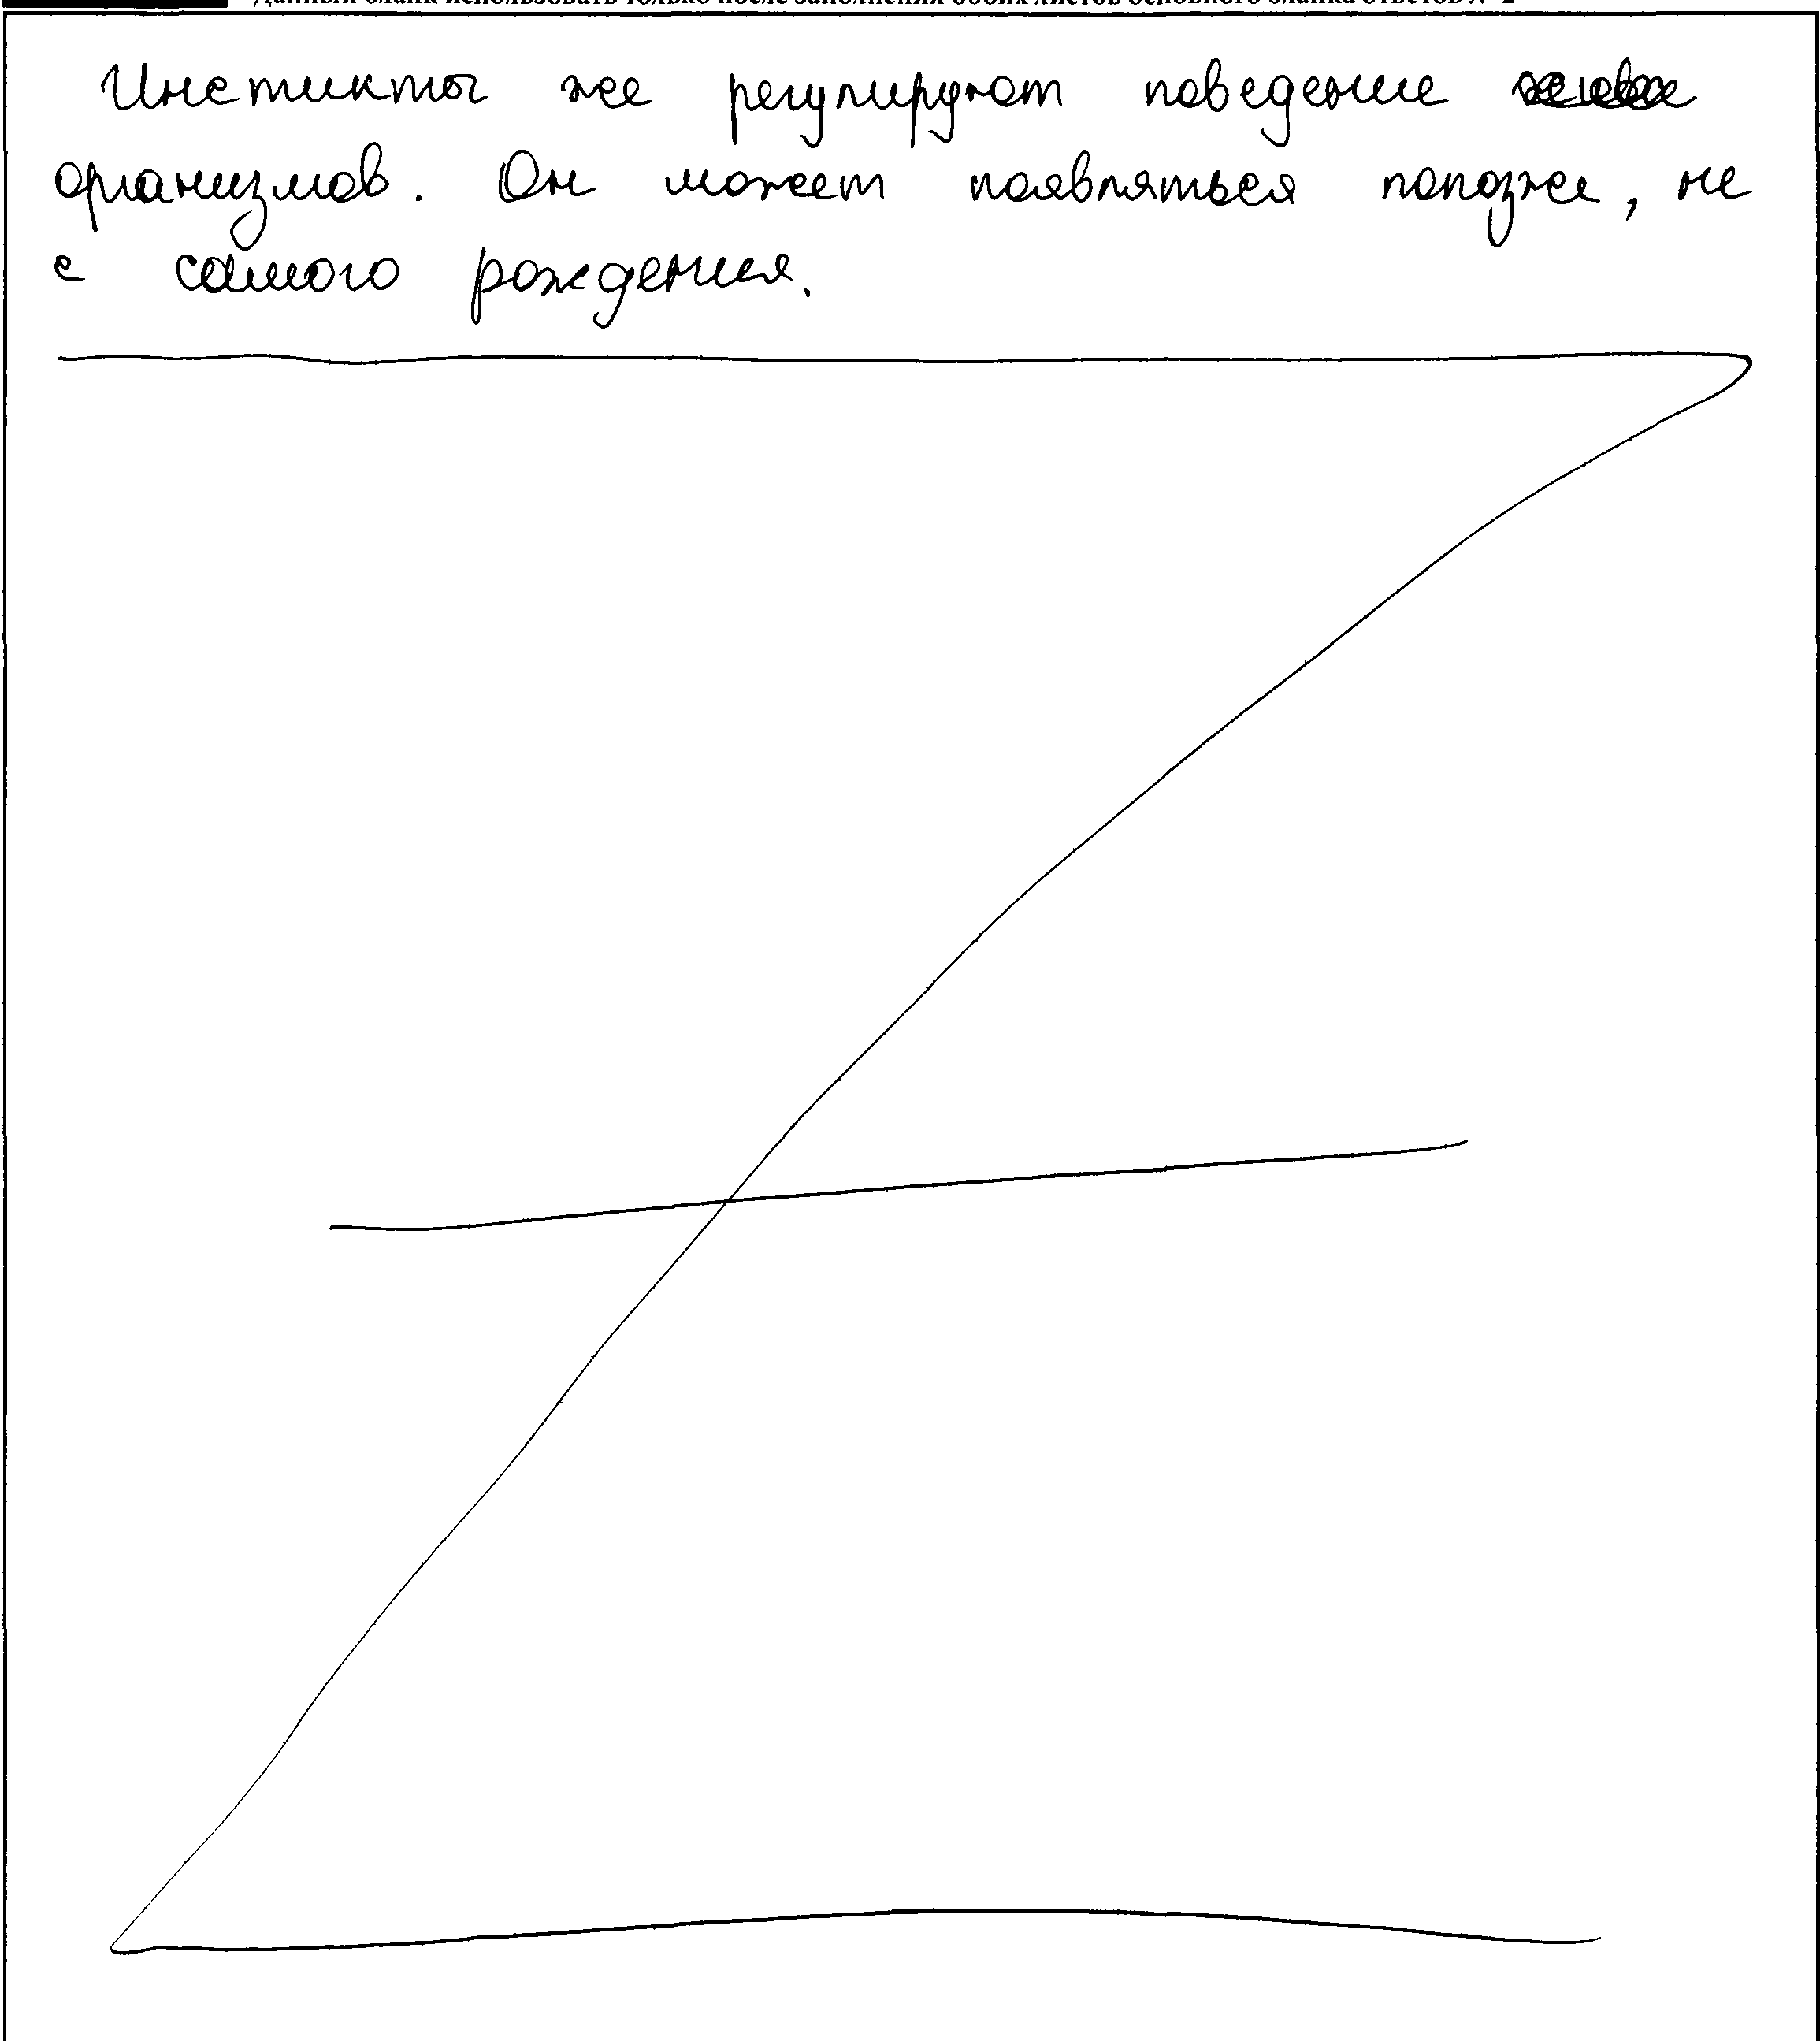 Данный бланк использовать только после заполнения обоих листов основного бланка ответов № 2
Инстикты же регулируют поведение
организмов. Он может появляться попозже, не
с самого рождения.